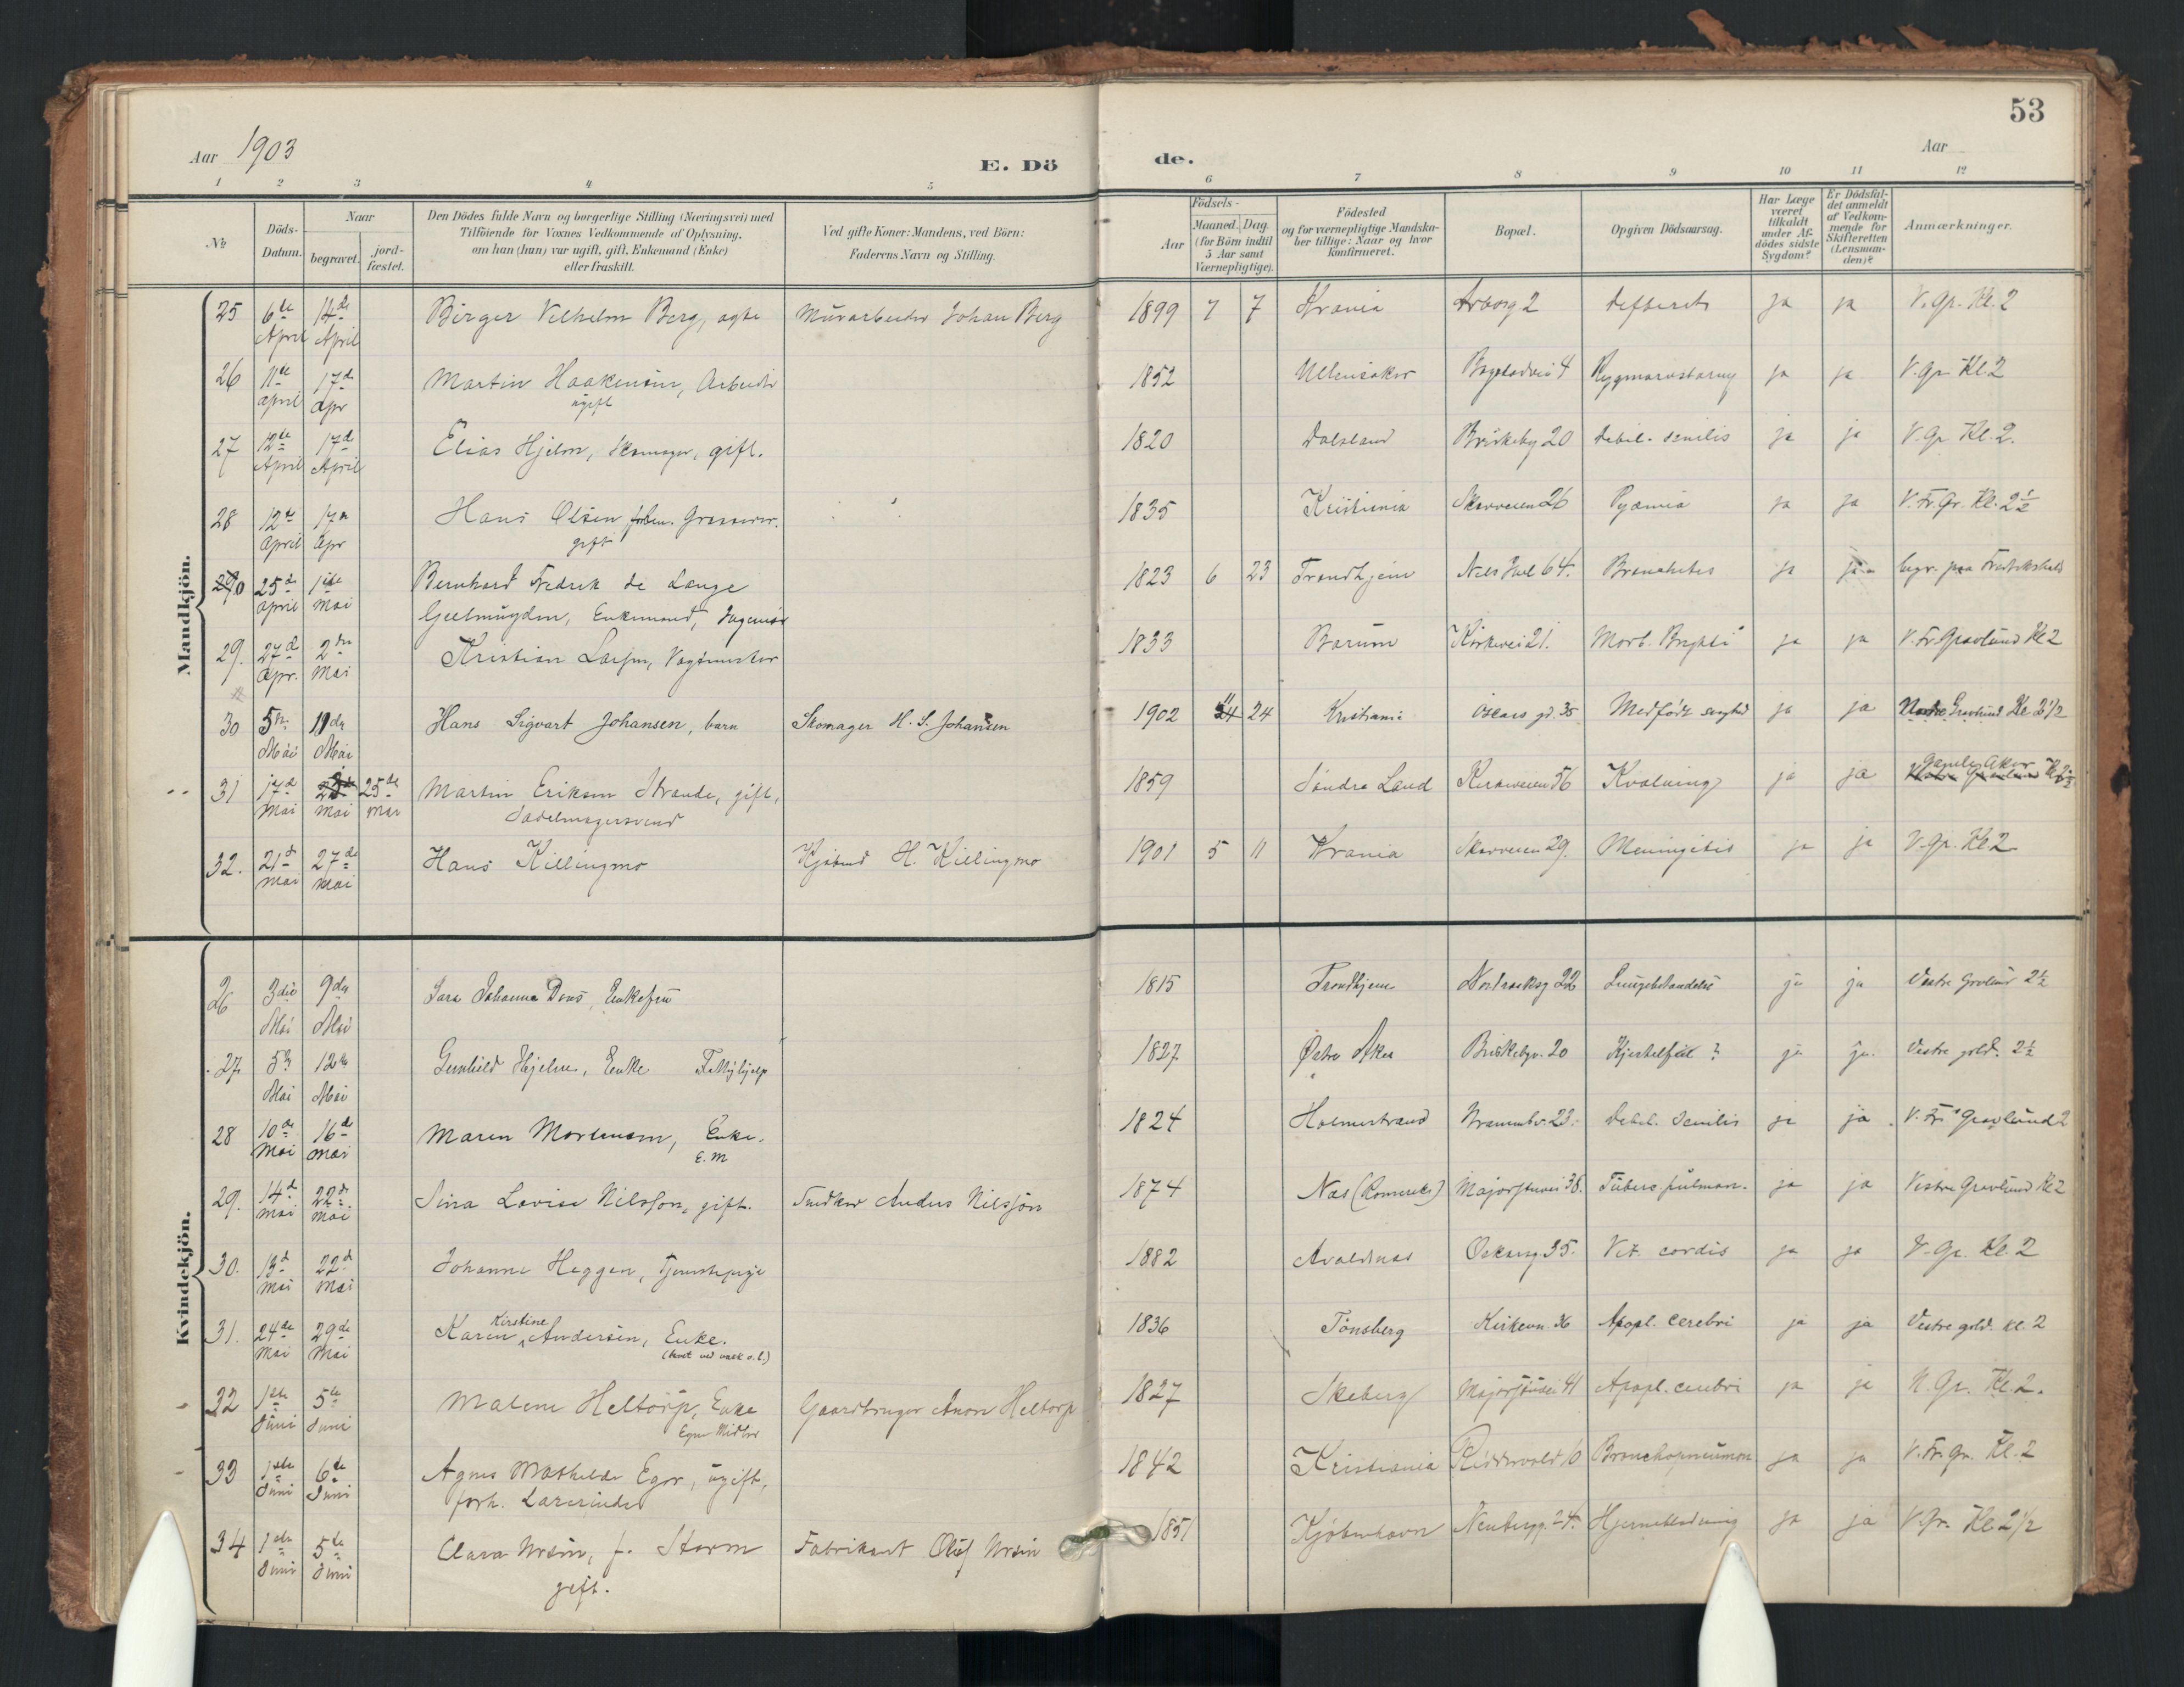 53
Aar 1903
E. Dö
de.
Aar
1 2 3 4 5 6 7 8 9 10 11 12
№
Döds-
Datum.
Naar
begravet.
jord-
fæstet.
Den Dödes fulde Navn og borgerlige Stilling (Næringsvei) med
Tilföiende for Voxnes Vedkommende af Oplysning,
om han (hun) var ugift, gift, Enkemand (Enke)
eller fraskilt.
Ved gifte Koner: Mandens, ved Börn:
Faderens Navn og Stilling.
Födsels-
Aar
Maaned. Dag.
(for Börn indtil
5 Aar samt
Værnepligtige).
Födested
og for værnepligtige Mandska-
ber tillige: Naar og hvor
konfirmeret.
Bopæl.
Opgiven Dödsaarsag.
Har Læge
været
tilkaldt
under Af-
dödes sidste
Sygdom?
Er Dödsfal-
det anmeldt
af Vedkom-
mende for
Skifteretten
(Lensman-
den)?
Anmærkninger.
Mandkjön.
25 6te April 14de April Birger Vilhelm Berg, ægte Murarbeider Johan Berg 1899 7 7 Krania Arbosg 2 Defterit ja ja V. Gr. Kl. 2
26 11te April 17de Apr Martin Haakensen, Arbeider
ugift
1852 Ullensaker 4 Rygmarvstæring ja ja V. Gr. Kl. 2
27 12te April 17de April Elias Hjelm, Skomager, gift. 1820 Dalsland Briskeby 20 Debil. senilis ja ja V. Gr Kl. 2.
28 12te April 17de Apr Hans Olsen forhen. Grosserer.
gift
1835 Kristiania Skovveien 26 Pyæmia ja ja V. Fr. Gr. Kl. 2½
25de April 1ste Mai Bernhard Fredrik de Lange
Geelmuyden, Enkemand, Ingeniør
1823 6 23 Trondhjem Niels Juel 64. Bronchites ja ja begr. paa Fredrikshald
29. 27de Apr. 2den Mai Kristian Larsen, Vagtmester 1833 Bærum Kirkevei 21. Morb. Brighti ja ja V. Fr. Gravlund Kl 2
30 5te Mai 11de Mai Hans Sigvart Johansen, barn Skomager H. S. Johansen 1902 11 24 Kristiania Oscars gd. 35 Medfødt svaghed ja ja Vestre Gravlund Kl 2½
31 17de Mai Mai 25de Mai Martin Eriksen Strande, gift,
Sadelmagersvend
1859 Søndre Land Kirkeveien 56 Kvælning ja ja Gamle Aker
32. 21de Mai 27de Mai Hans Killingmo Kjøbmd H. Killingmo 1901 5 11 Krania Skovveien 29. Meningitis ja ja V. Gr. Kl 2
Kvindekjön.
26 3die Mai 9de Mai Sara Johanna Dons, Enkefru 1815 Trondhjem 22 Lungebetændelse ja ja Vestre Gravlund 2½
27 5te Mai 12te Mai Gunhild Hjelm, Enke 1827 Østre Aker Briskebyv. 20 Hjertefeil? ja ja. Vestre gvld. 2½
28 10de Mai 16de Mai Maren Mortensen, Enke.
E. M
1824 Holmestrand 23. Debil. Senilis ja ja V. Fr. Gravlund 2
29. 14de Mai 22de Mai Sina Lovise Nilsson, gift. Snedker Anders Nilsson 1874 Næs (Romerike) Majorstuvei 38. Tuberc. pulmon. ja ja Vestre Gravlund Kl 2
30. 13de Mai 22de Mai Johanne Heggen, Tjenestepige 1882 Avaldsnæs Oskarsg. 35. Vit. cordis ja ja V. Gr. Kl. 2
31. 24de Mai 29de Mai Karen Kirstine Andersen, Enke. 1836 Tönsberg Kirkevn. 36 Apopl. cerebri ja ja Vestre gvld. Kl. 2
32 1ste Juni 5te Juni Malene Heltorp, Enke Gaardbruger Anon Heltorp
Egne Midler
1827 Skeberg Majorstuvei 41 Apopl. cerebri ja ja N. Gr. Kl. 2.
33 1ste Juni 6te Juni Agnes Mathilde Eger, ugift,
forh. Lærerinde
1842 Kristiania Riddervold 10 Bronchopneumon ja ja V. Fr. Gr. Kl. 2
34 1ste Juni 5te Juni Clara Ursin, f. Storm
gift.
Fabrikant Oluf Ursin 1851 Kjøbenhavn Neubergg. 24. Hjerneblødning ja ja V. Gr. Kl. 2½